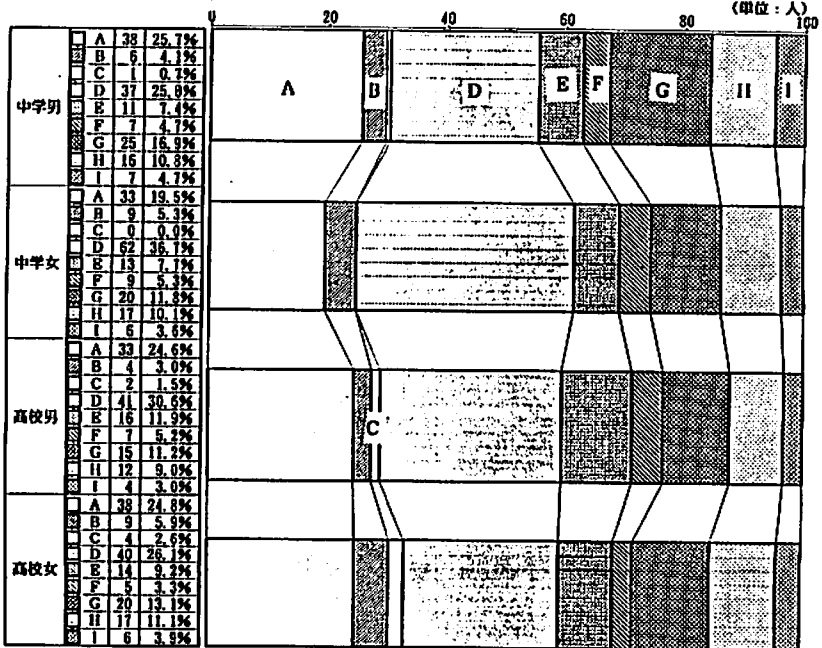 (単位：人)
0 20 40 60 80 100
中学男
A 38 25.7%
B 6 4.1%
C 1 0.7%
D 37 25.0%
E 11 7.4%
F 7 4.7%
G 25 16.9%
H 16 10.8%
I 7 4.7%
A B D E F G H I
中学女
A 33 19.5%
B 9 5.3%
C 0 0.0%
D 62 36.7%
E 13 7.7%
F 9 5.3%
G 20 11.8%
H 17 10.1%
I 6 3.6%
高校男
A 33 24.6%
B 4 3.0%
C 2 1.5%
D 41 30.6%
E 16 11.9%
F 7 5.2%
G 15 11.2%
H 12 9.0%
I 4 3.0%
C
高校女
A 38 24.8%
B 9 5.9%
C 4 2.6%
D 40 26.1%
E 14 9.2%
F 5 3.3%
G 20 13.1%
H 17 11.1%
I 6 3.9%